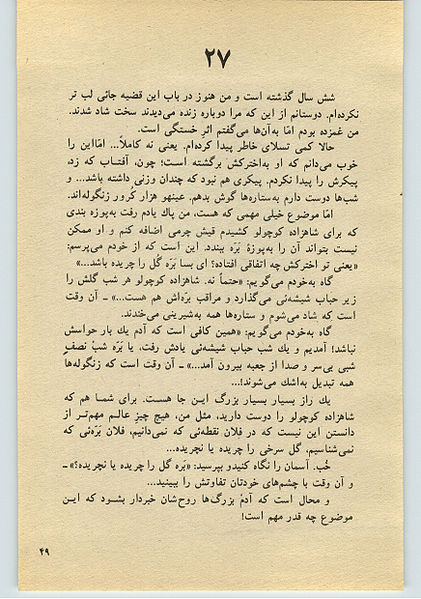 ۲۷
شش سال گذشته است و من هنوز در باب این قضیه جائی لب تر
نکرده‌ام. دوستانم از این که مرا دوباره زنده می‌دیدند سخت شاد شدند.
من غمزده بودم امّا به‌آن‌ها می‌گفتم اثرِ خستگی است.
حالا کمی تسلای خاطر پیدا کرده‌ام. یعنی نه کاملاً... امّااین را
خوب می‌دانم که او به‌اخترکش برگشته است؛ چون، آفتـاب که زد،
پیکرش را پیدا نکردم. پیکری هم نبود که چندان وزنی داشته باشد... و
شب‌ها دوست دارم به‌ستاره‌ها گوش بدهم. عینهو هزار کرور زنگوله‌اند.
امّا موضوع خیلی مهمی که هست، من پاك یادم رفت به‌پوزه بندی
که برای شاهزاده کوچولو کشیدم قیش چرمی اضافه کنم و او ممکن
نیست بتواند آن را به‌پوزهٔ بَرّه ببندد. این است که از خودم می‌پرسم:
«یعنی تو اخترکش چه اتفاقی افتاده؟ ای بسا بَرّه گُل را چریده باشد...»
گاه به‌خودم می‌گویم: «حتماً نه. شاهزاده کوچولو هر شب گلش را
زیر حباب شیشه‌ئی می‌گذارد و مراقب بَرّه‌اش هم هست...» ـ آن وقت
است که شاد می‌شوم و ستاره‌ها همه به‌شیرینی می‌خندند.
گاه به‌خودم می‌گویم: «همین کافی است که آدم یك بار حواسش
نباشد! آمدیم و یك شب حباب شیشه‌ئی یادش رفت، یا بَرّه شبْ نصفِ
شبی بی‌سر و صدا از جعبه بیرون آمد...» ـ آن وقت است که زنگوله‌ها
همه تبدیل به‌اشك می‌شوند!...
یك راز بسیار بسیار بزرگ این جا هست. برای شمـا هم که
شاهزاده کوچولو را دوست دارید، مثل من، هیچ چیزِ عالـم مهم‌تـر از
دانستن این نیست که در فلان نقطه‌ئی که نمی‌دانیم، فلان بَرّه‌ئی که
نمی‌شناسیم، گل سرخی را چریده یا نچریده...
خُب. آسمان را نگاه کنیدو بپرسید: «بَرّه گل را چریده یا نچریده؟» ـ
و آن وقت با چشم‌های خودتان تفاوتش را ببینید...
و محال است که آدم بزرگ‌ها روح‌شان خبردار بشـود که ایـن
موضوع چه قدر مهم است!
۴۹